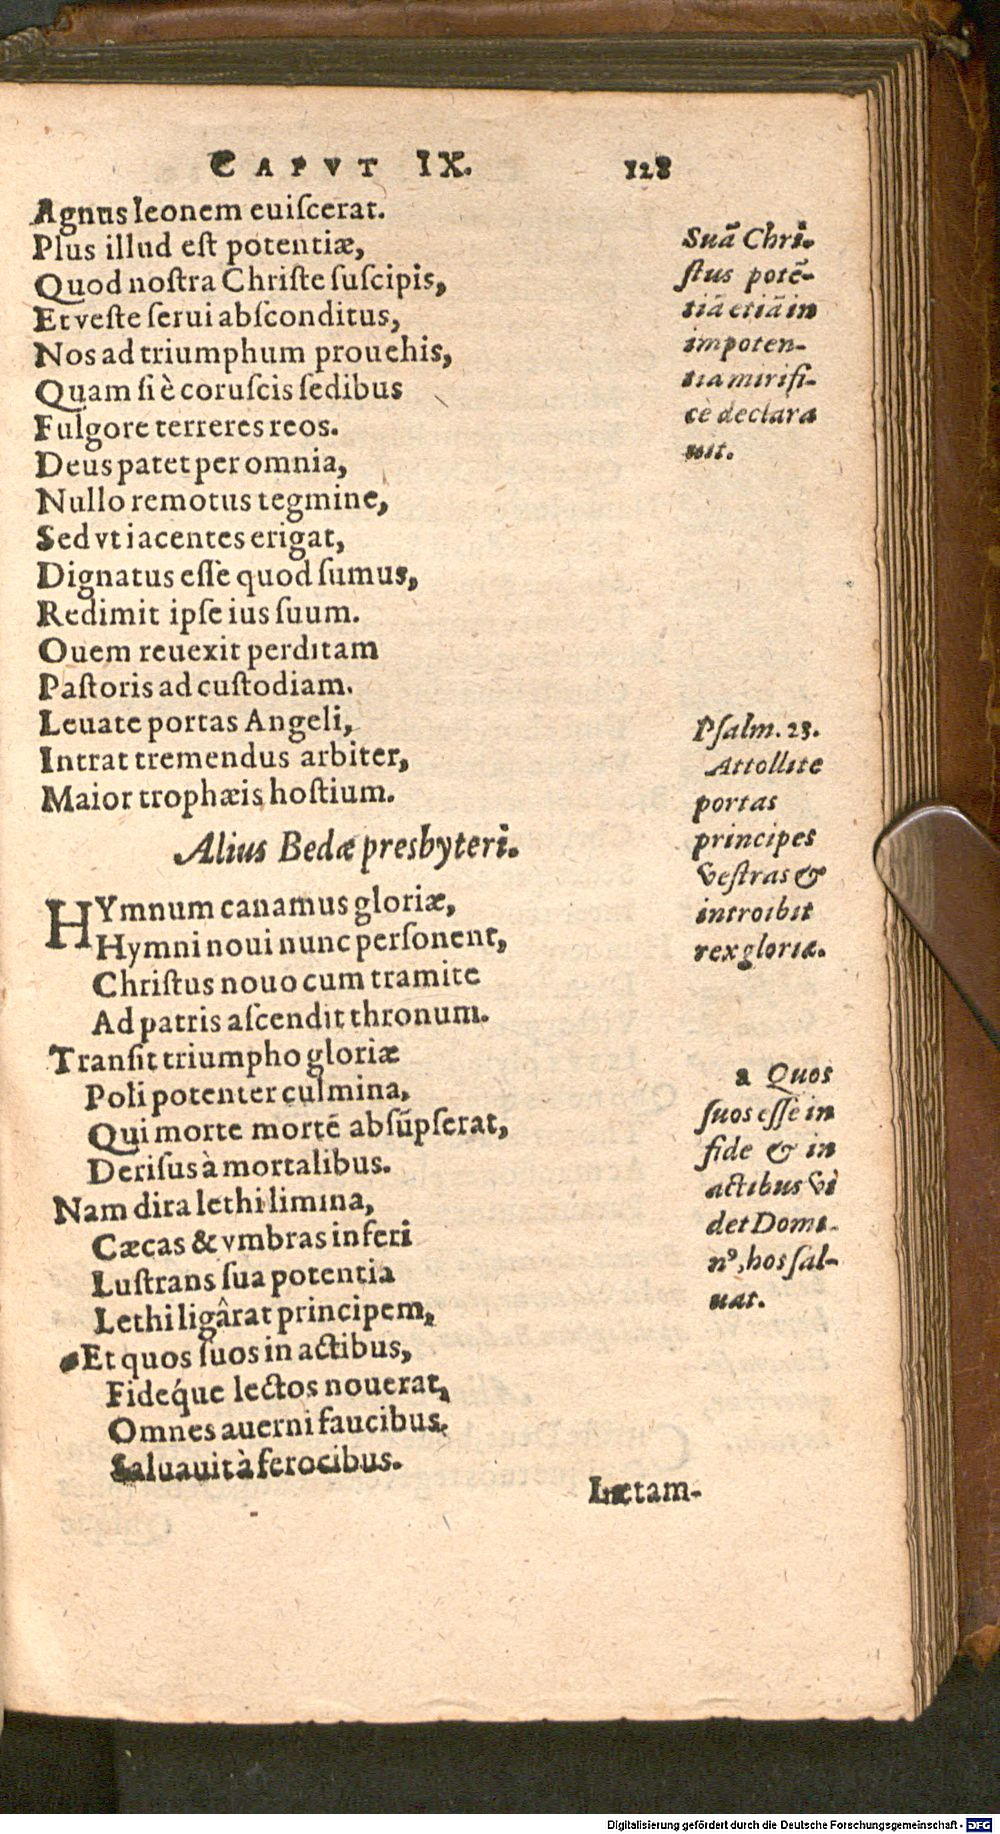 CAPVT IX. 128
Agnus leonem euiſcerat.
Plus illud eſt potentiæ,
Quod noſtra Chriſte ſuſcipis,
Et veſte ſerui abſconditus,
Nos ad triumphum prouehis,
Quam ſi è coruſcis ſedibus
Fulgore terreres reos.
Deus patet per omnia,
Nullo remotus tegmine,
Sed vt iacentes erigat,
Dignatus eſſe quod ſumus,
Redimit ipſe ius ſuum.
Ouem reuexit perditam
Paſtoris ad cuſtodiam.
Leuate portas Angeli,
Intrat tremendus arbiter,
Maior trophæis hoſtium.
Suā Chri-
ſtus potē-
tiā etiā in
impoten-
tia mirifi-
cè declara
uit.
Pſalm. 23.
Attollite
portas
principes
veſtras &
introibit
rex gloriæ.
Alius Bedæ presbyteri.
HYmnum canamus gloriæ,
Hymni noui nunc perſonent,
Chriſtus nouo cum tramite
Ad patris aſcendit thronum.
Tranſit triumpho gloriæ
Poli potenter culmina,
Qui morte mortē abſūpſerat,
Deriſus à mortalibus.
Nam dira lethi limina,
Cæcas & vmbras inferi
Luſtrans ſua potentia
Lethi ligârat principem,
Et quos ſuos in actibus,
Fideq́ue lectos nouerat,
Omnes auerni faucibus
Saluauit à ferocibus.
a Quos
ſuos eſſe in
fide & in
actibus vi
det Domi-
nꝰ, hos ſal-
uat.
Lætam-
Digitalisierung gefördert durch die Deutsche Forschungsgemeinschaft - DFG